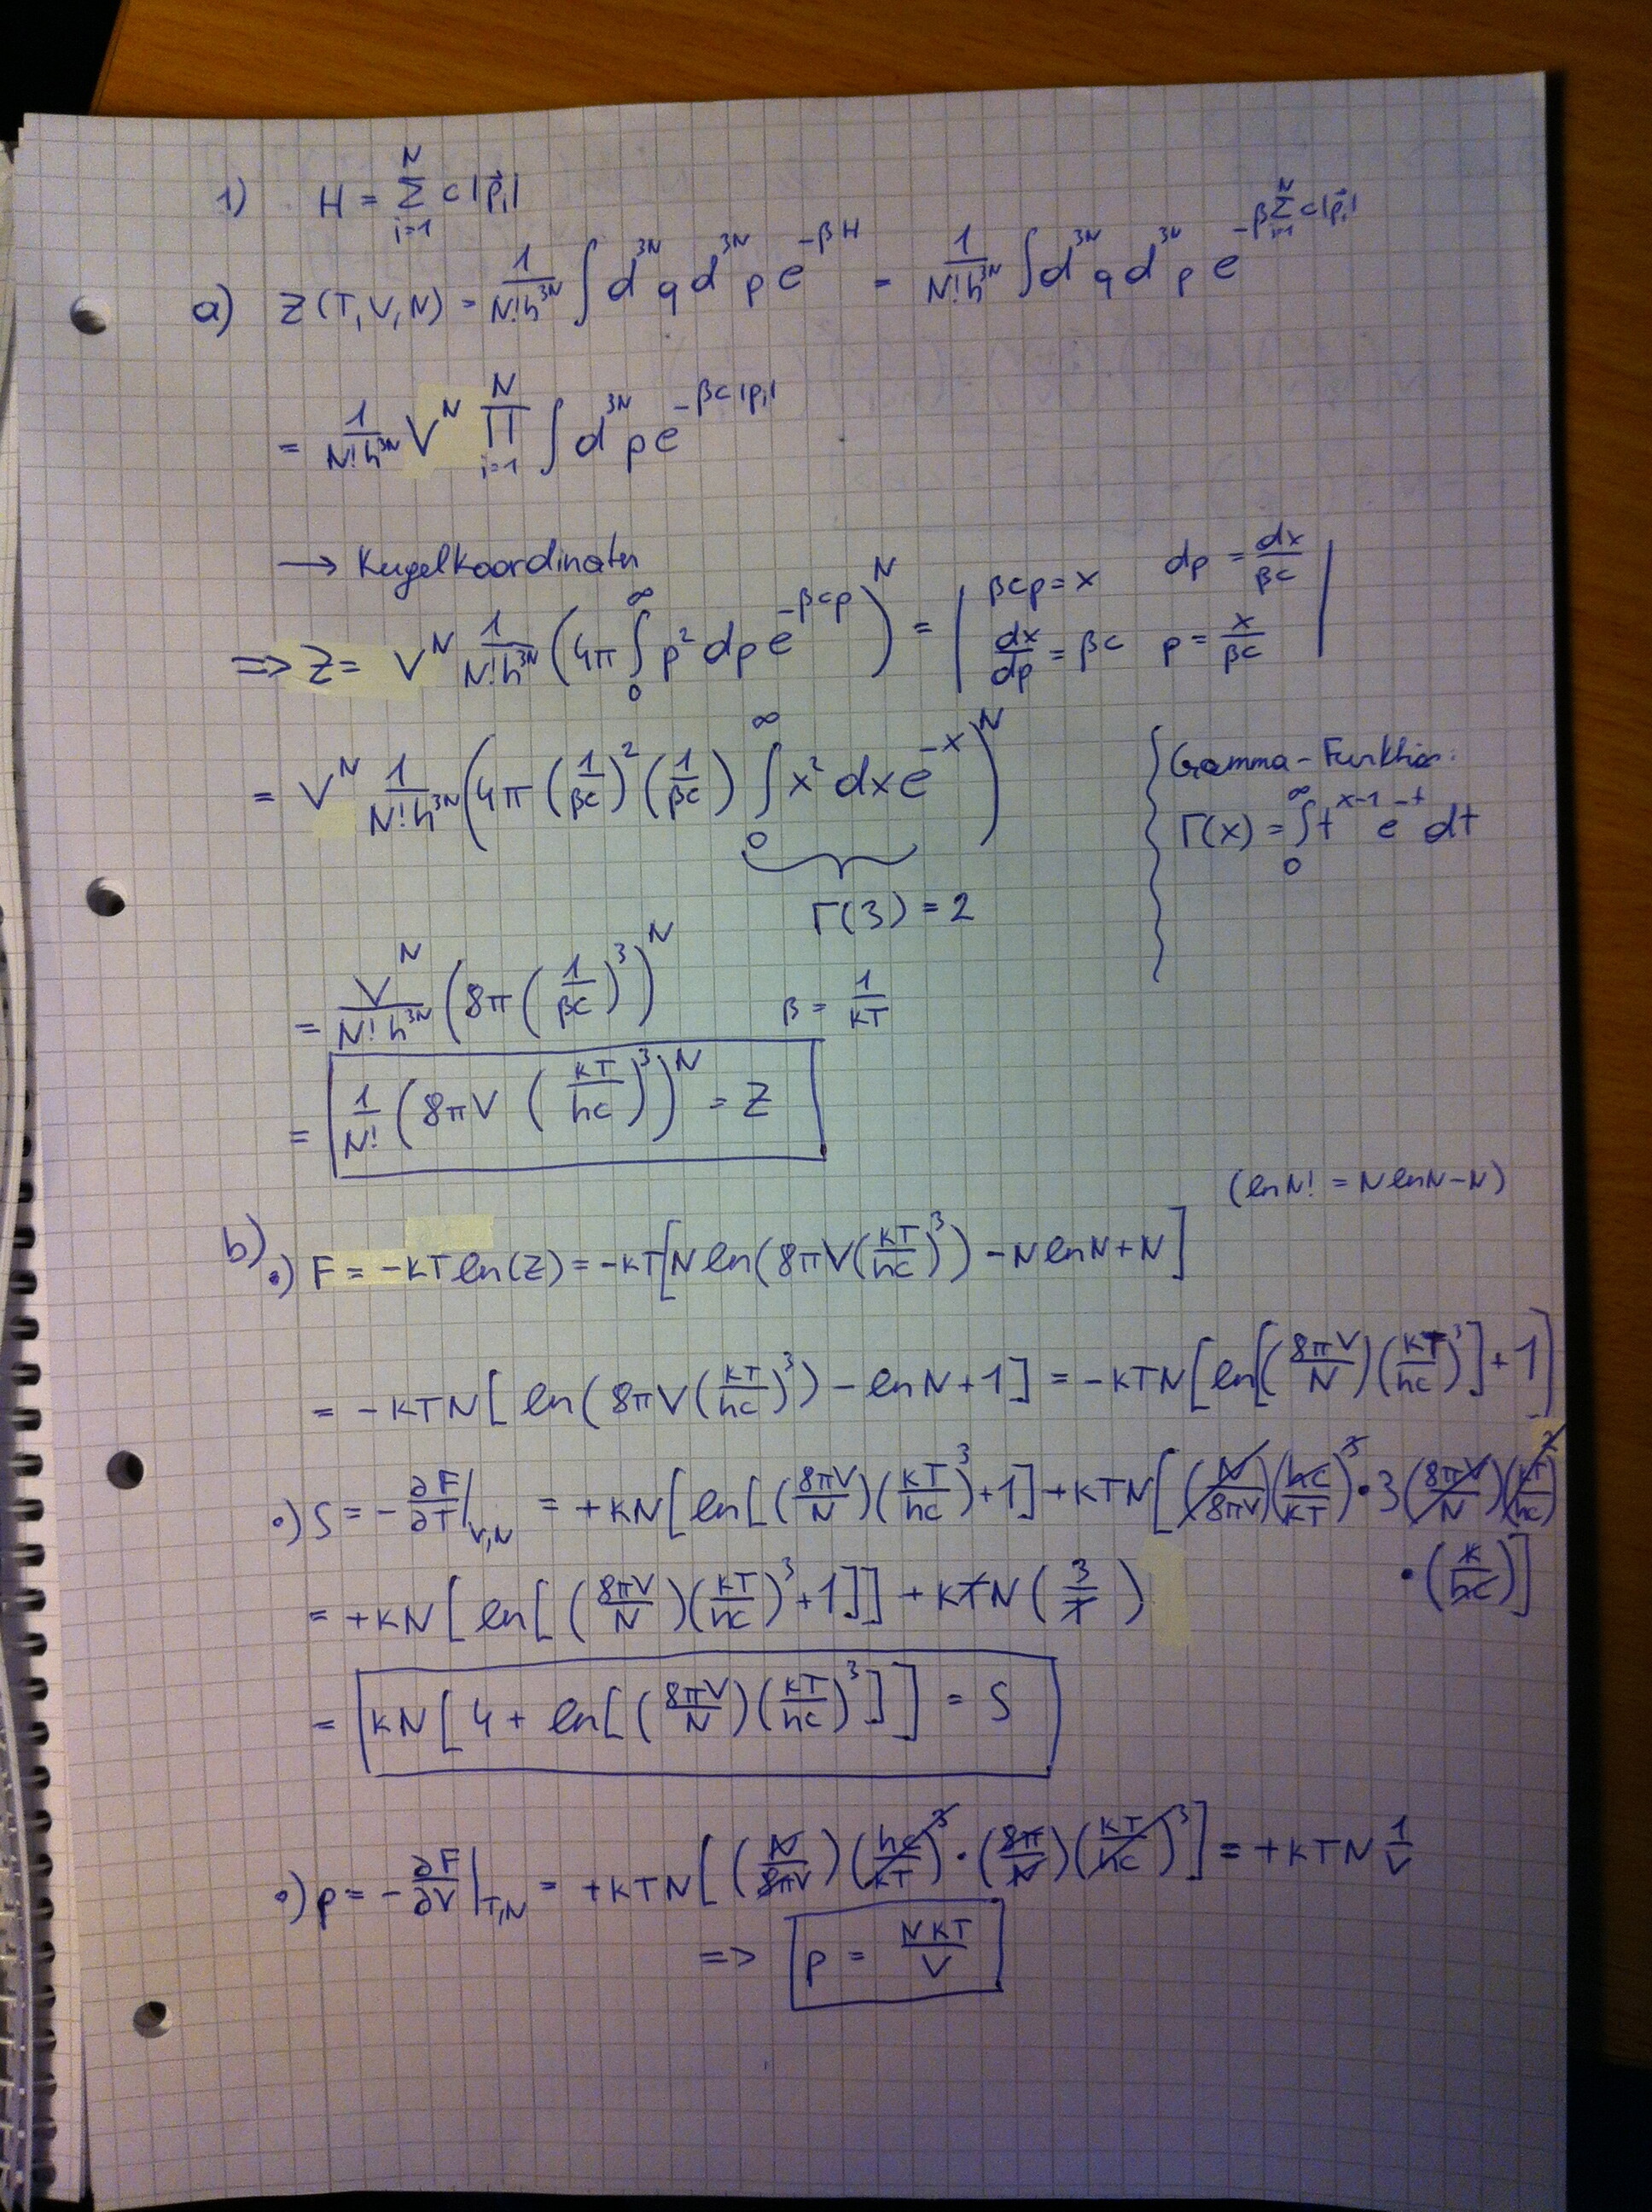 1) H = \sum_{i=1}^{N} c|\vec{p}_i|
a) Z(T,V,N) = \frac{1}{N!h^{3N}} \int d^{3N}q d^{3N}p e^{-βH} = \frac{1}{N!h^{3N}} \int d^{3N}q d^{3N}p e^{-β\sum_{i=1}^{N} c|\vec{p}_i|}
= \frac{1}{N!h^{3N}} V^N \prod_{i=1}^{N} \int d^{3N}p e^{-βc|p_i|}
→ Kugelkoordinaten
=> Z = V^N \frac{1}{N!h^{3N}} (4π \int_0^∞ p^2 dp e^{-βcp})^N = | βcp = x dp = \frac{dx}{βc} \frac{dx}{dp} = βc p = \frac{x}{βc} |
= V^N \frac{1}{N!h^{3N}} (4π (\frac{1}{βc})^2 (\frac{1}{βc}) \int_0^∞ x^2 dx e^{-x})^N
Γ(3) = 2
Gamma-Funktion:
Γ(x) = \int_0^∞ t^{x-1} e^{-t} dt
= \frac{V^N}{N! h^{3N}} (8π (\frac{1}{βc})^3)^N β = \frac{1}{kT}
= \frac{1}{N!} (8πV (\frac{kT}{hc})^3)^N = Z
(ln N! = N ln N - N)
b) •) F = -kT ln(Z) = -kT[N ln(8πV(\frac{kT}{hc})^3) - N ln N + N]
= -kTN[ln(8πV(\frac{kT}{hc})^3) - ln N + 1] = -kTN[ln[(\frac{8πV}{N})(\frac{kT}{hc})^3] + 1]
•) S = -\frac{∂F}{∂T}|_{V,N} = +kN[ln[(\frac{8πV}{N})(\frac{kT}{hc})^3 + 1] + kTN[(\frac{N}{8πV})(\frac{hc}{kT})^3 • 3(\frac{8πV}{N})(\frac{kT}{hc})^2
• (\frac{k}{hc})]
= +kN[ln[(\frac{8πV}{N})(\frac{kT}{hc})^3 + 1]] + kTN(\frac{3}{T})
= kN[4 + ln[(\frac{8πV}{N})(\frac{kT}{hc})^3]] = S
•) p = -\frac{∂F}{∂V}|_{T,N} = +kTN[(\frac{N}{8πV})(\frac{hc}{kT})^3 • (\frac{8π}{N})(\frac{kT}{hc})^3] = +kTN \frac{1}{V}
=> p = \frac{NkT}{V}